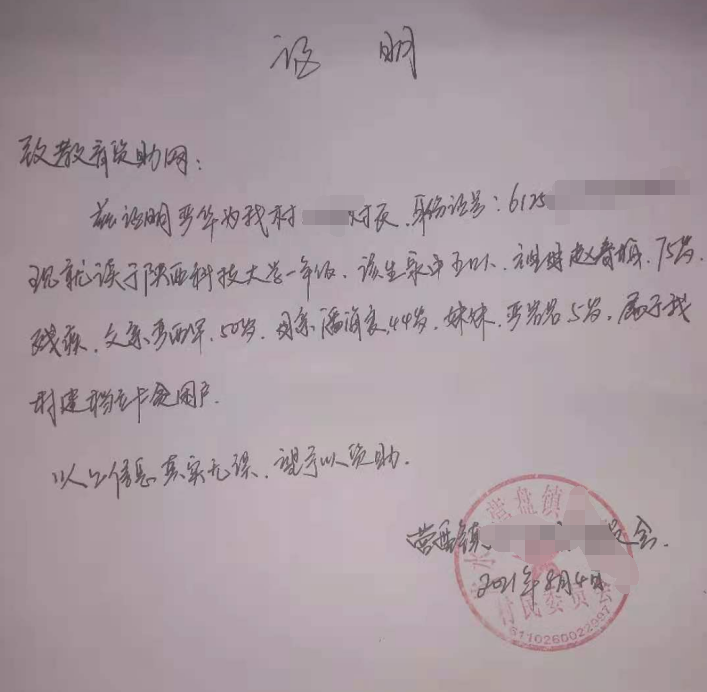 证 明
致教育资助网：
兹证明严华为我村 村民，身份证号：6125
现就读于陕西科技大学一年级，该生家中五口人，祖母赵春 75岁，
残疾，父亲 50岁，母亲潘 44岁，妹妹，严 5岁，属于我
村建档立卡 户.
以上信息真实无误，望予以资助.
营盘镇 会.
2021年8月4日
水 营盘镇 村民委员会
6110260022997